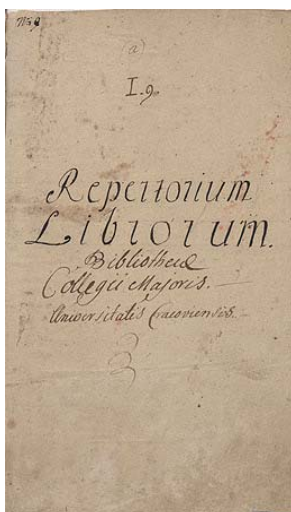 (a)
I.9.
Repertorium
Librorum.
Bibliothecæ
Collegii Majoris.
Universitatis Cracoviensis.